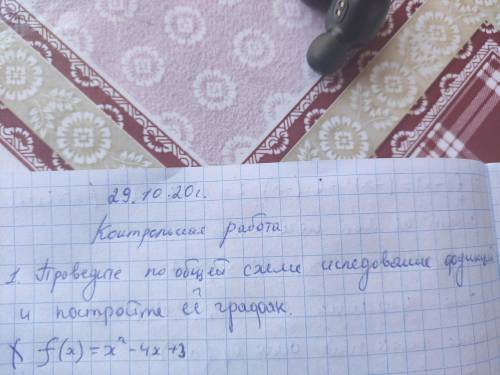 29.10.20г.
Контрольная работа
1. Проведите по общей схеме иследование функции
и постройте её график.
f(x) = x² - 4x + 3